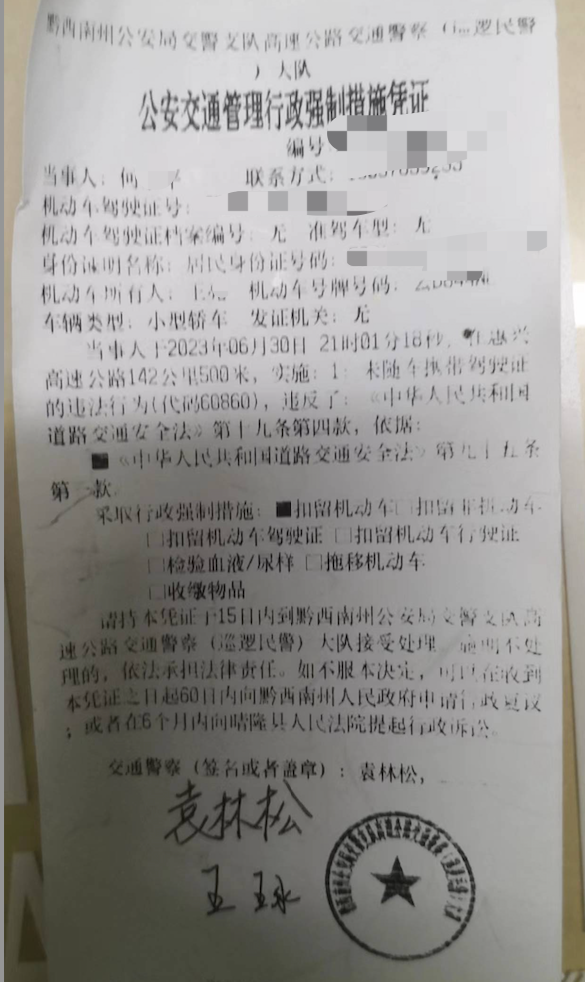 黔西南州公安局交警支队高速公路交通警察（巡逻民警
）大队
公安交通管理行政强制措施凭证
编号
当事人：何 联系方式：
机动车驾驶证号：
机动车驾驶证档案编号：无 准驾车型：无
身份证明名称：居民身份证号码：
机动车所有人：王 机动车号牌号码：
车辆类型：小型轿车 发证机关：无
当事人于2023年06月30日 21时01分18秒，在惠兴
高速公路142公里500米，实施：1：未随车携带驾驶证
的违法行为(代码60860)，违反了：《中华人民共和国
道路交通安全法》第十九条第四款，依据：
■《中华人民共和国道路交通安全法》第九十五条
第一款
采取行政强制措施：■扣留机动车□扣留非机动车
□扣留机动车驾驶证 □扣留机动车行驶证
□检验血液/尿样 □拖移机动车
□收缴物品
请持本凭证于15日内到黔西南州公安局交警支队高
速公路交通警察（巡逻民警）大队接受处理。逾期不处
理的，依法承担法律责任。如不服本决定，可以在收到
本凭证之日起60日内向黔西南州人民政府申请行政复议
；或者在6个月内向晴隆县人民法院提起行政诉讼。
交通警察（签名或者盖章）：袁林松，
袁林松
王